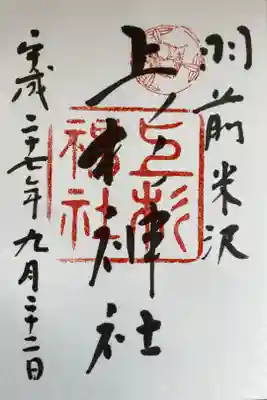 羽前米沢
上杉神社
上杉
神社
平成二十七年九月二十二日